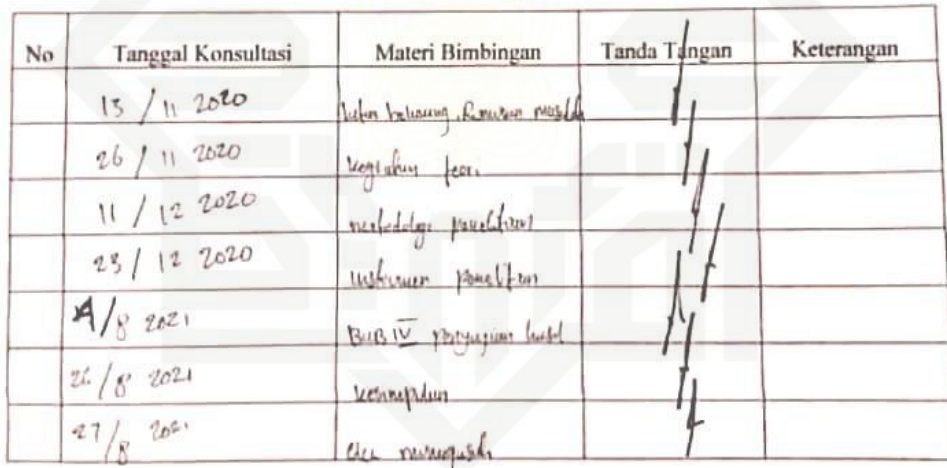 No Tanggal Konsultasi Materi Bimbingan Tanda Tangan Keterangan
13 / 11 2020 latar belakang, Rumusan masalah
26 / 11 2020 teori
11 / 12 2020 metodologi penelitian
23 / 12 2020 instrumen penelitian
/8 2021 BAB IV hasil
26/8 2021 kesimpulan
27/8 2021